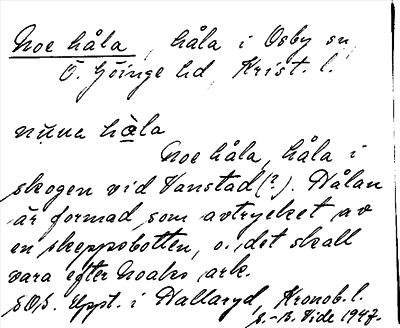 Noe håla, håla i Osby sn,
Ö. Göinge hd, Krist. l.
nuna håla
Noe håla, håla i
skogen vid Vanstad (?). Hålan
är formad som avtrycket av
en skeppsbotten, o. det skall
vara efter Noaks ark.
SOS. Uppt. i Hallaryd, Kronob. l.
1947.